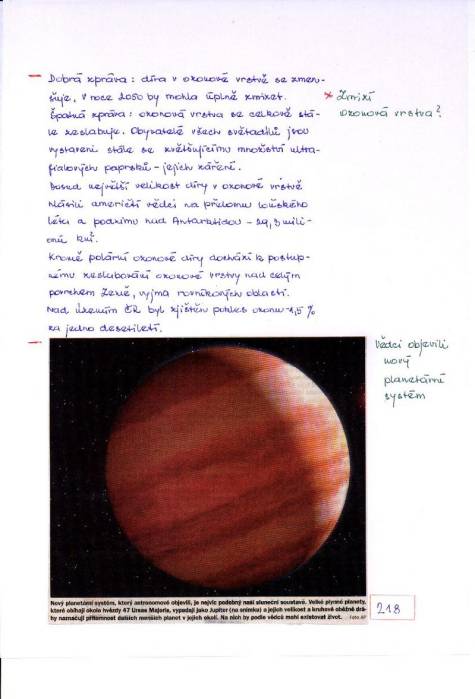 Dobrá zpráva: díra v ozonové vrstvě se zmen-
šuje, v roce 2050 by mohla úplně zmizet.
Špatná zpráva: ozonová vrstva se celkově stá-
le zeslabuje. Obyvatelé všech světadílů jsou
vystaveni stále se zvětšujícímu množství ultra-
fialových paprsků - jejich záření.
Dosud největší velikost díry v ozonové vrstvě
hlásili američtí vědci na přelomu loňského
léta a podzimu nad Antarktidou - 29,3 mili-
onů km².
Kromě polární ozonové díry dochází k postup-
nému zeslabování ozonové vrstvy nad celým
povrchem Země, vyjma rovníkových oblastí.
Nad územím ČR byl zjištěn pokles ozonu 4,5 %
za jedno desetiletí.
* Zmizí
ozonová vrstva?
Vědci objevili
nový
planetární
systém
Nový planetární systém, který astronomové objevili, je nejvíc podobný naší sluneční soustavě. Velké plynné planety,
které obíhají okolo hvězdy 47 Ursae Majoris, vypadají jako Jupiter (na snímku) a jejich velikost a kruhové oběžné drá-
hy naznačují přítomnost dalších menších planet v jejich okolí. Na nich by podle vědců mohl existovat život. Foto AP
218